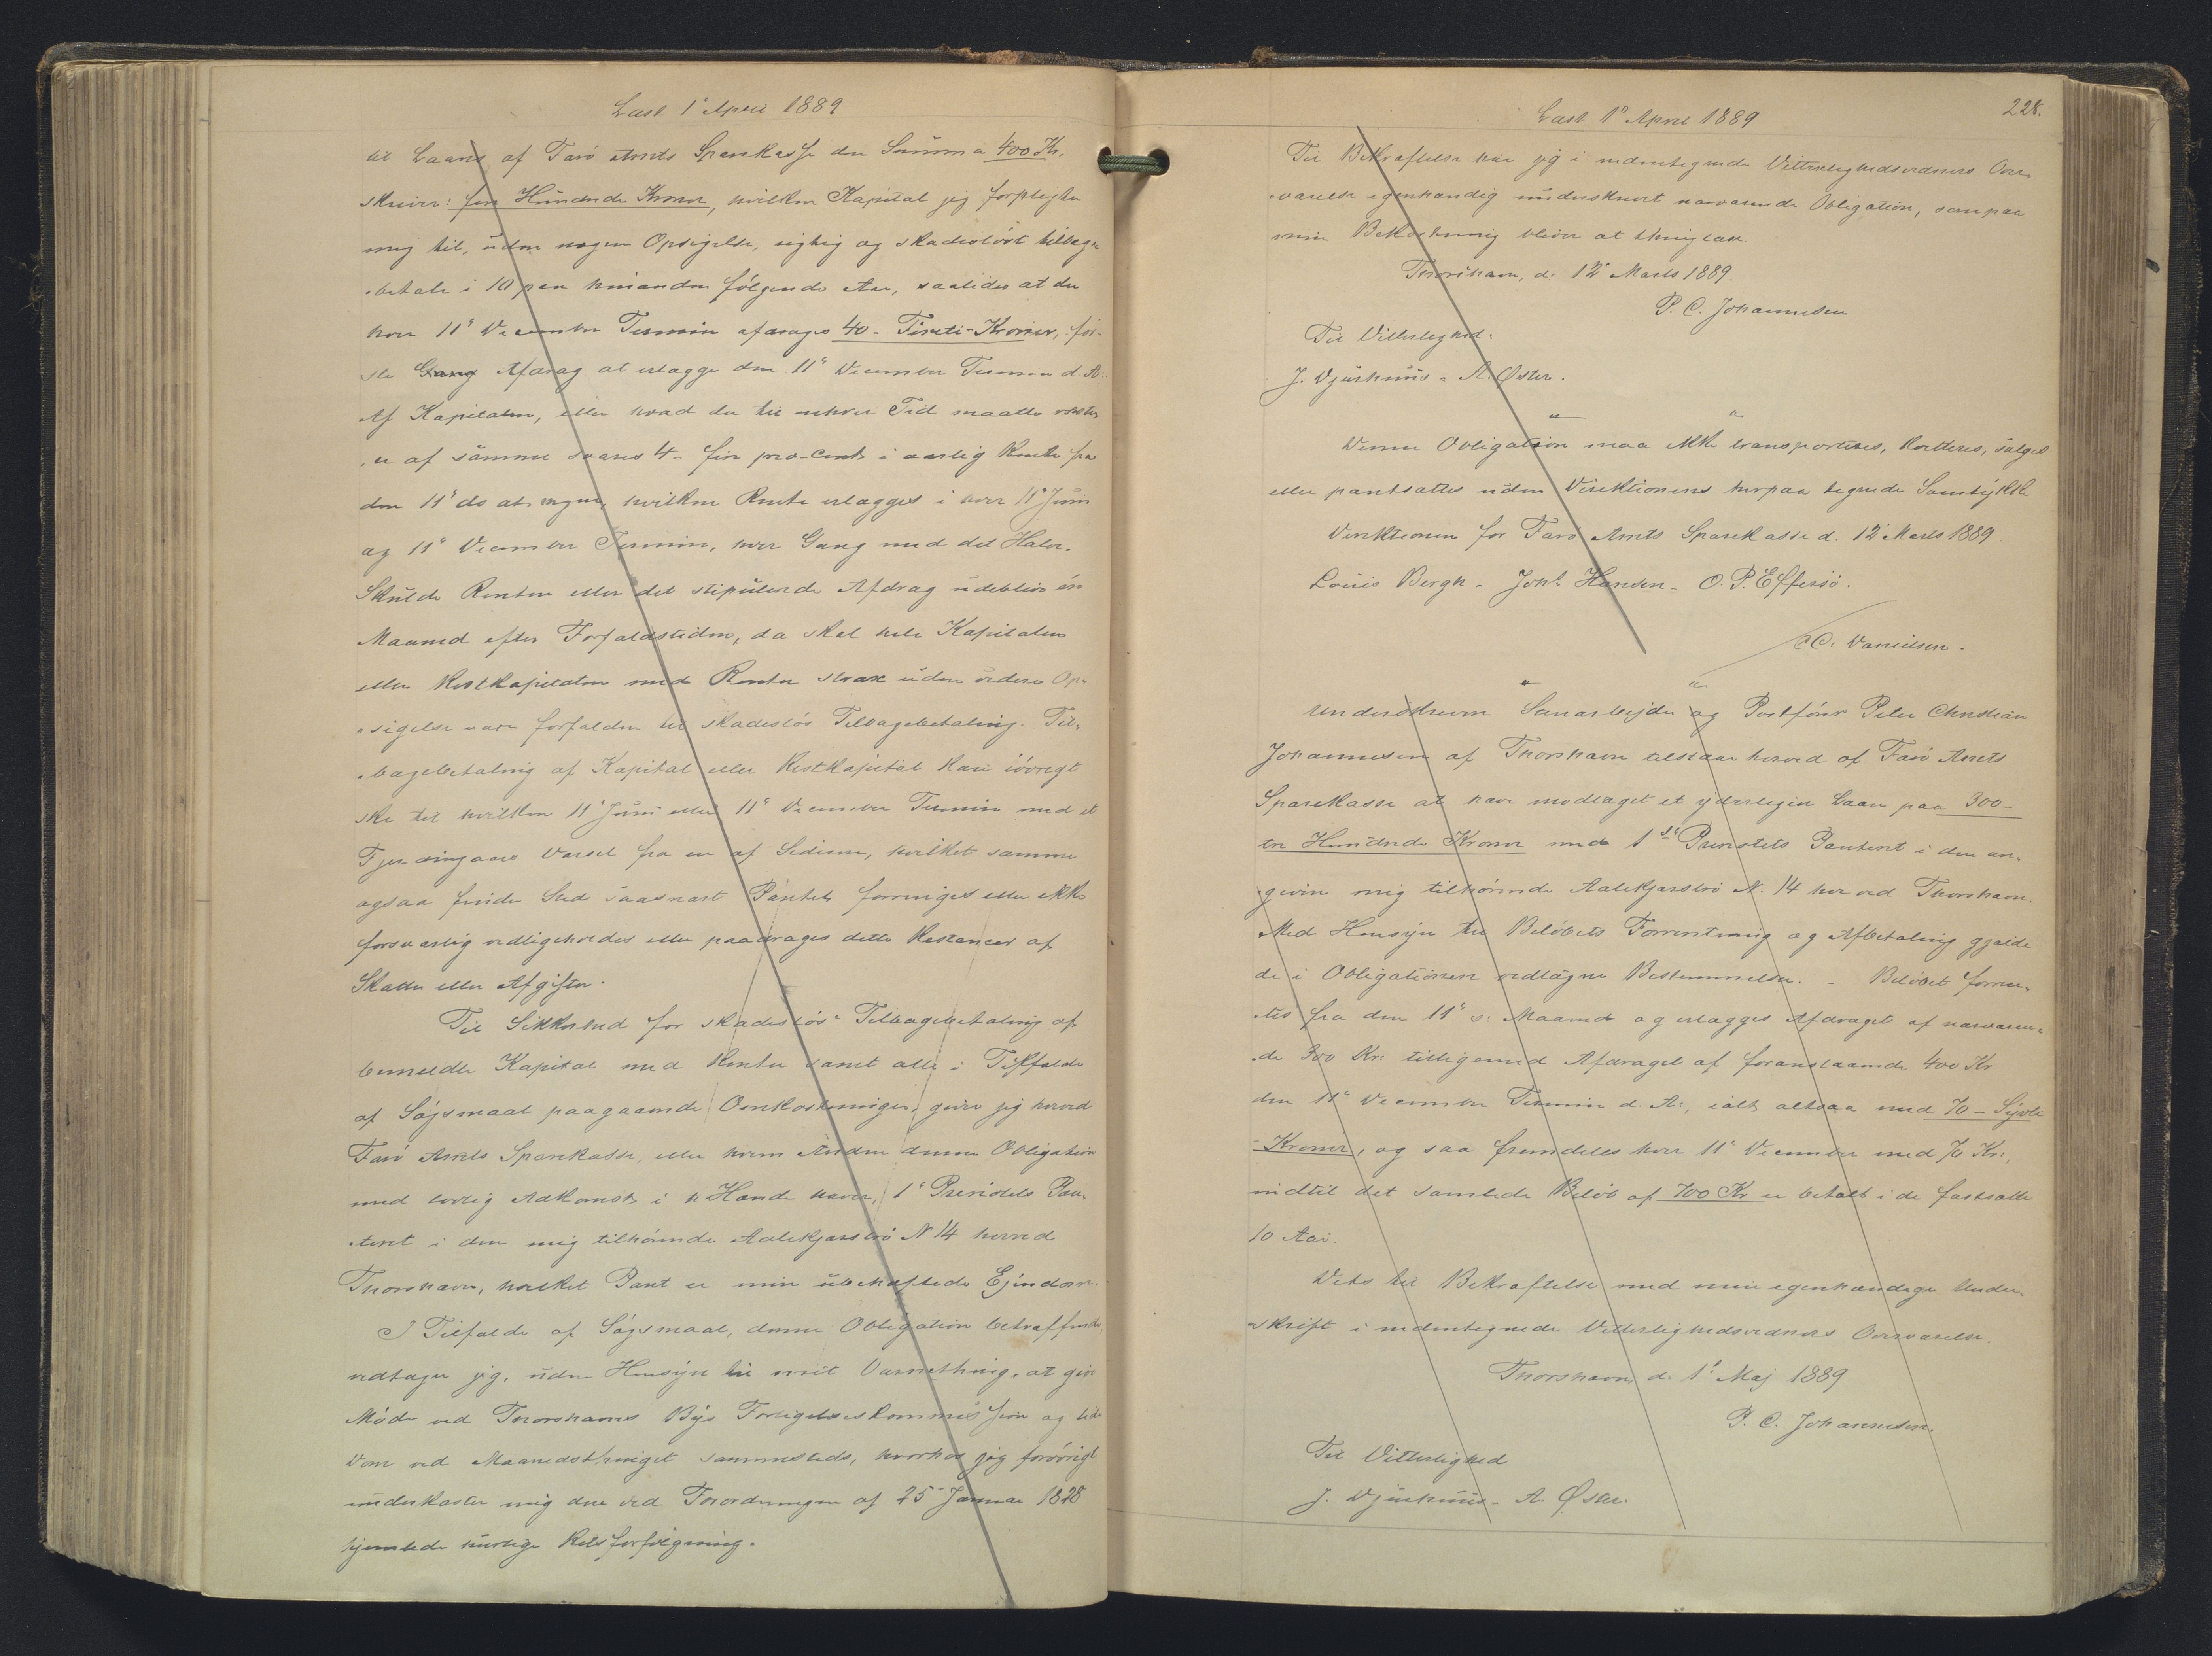 Læst 1' April 1889
til Laans af Farö Amts Sparekasse den Summa 400 Kr.
skriver: fire Hundrede Kroner, hvilken Kapital jeg forpligter
mig til, uden nogen Opsigelse, rigtig og skadeslöst tilbage
betale i 10 paa hinanden følgende Aar, saaledes at der
hver 11' December Termin afdrages 40 - Fireti-Kroner, för-
ste Gang Afdrag at erlægge den 11' December Termin d. A.
Af Kapitalen, eller hvad der til enhver Tid maatte restere
af samme svares 4 - fire pro-Cent i aarlig Rente fra
den 11' ds at regne, hvilken Rente erlægges i hver 11' Juni
og 11' December Termin, hver Gang med det Halve.
Skulde Renten eller det stipulerede Afdrag udeblive én
Maaned efter Forfaldstiden, da skal hele Kapitalen
eller Restkapitalen med Renter strax uden videre Op-
sigelse være forfalden til skadeslös Tilbagebetaling. Til-
bagebetaling af Kapital eller Restkapital kan iövrigt
ske til hvilken 11' Juni eller 11' December Termin med et
Fjerdingaars Varsel fra en af Siderne, hvilket samme
ogsaa finder Sted saasnart Pantet forringes eller ikke
forsvarlig vedligeholdes eller paadrages dette Restancer af
Skatter eller Afgifter.
Til Sikkerhed for skadeslös Tilbagebetaling af
bemeldte Kapital med Renter samt alle i Tilfælde
af Søgsmaal paagaaende Omkostninger, giver jeg herved
Farö Amts Sparekasse, eller hvem Anden denne Obligation
med lovlig Adkomst i Hænde haver, 1' Prioritets Pan-
teret i den mig tilhörende Aalekjærströ N 14 herved
Thorshavn, hvilket Pant er min ubehæftede Ejendom.
I Tilfælde af Søgsmaal, denne Obligation betræffende,
vedtager jeg, uden Hensyn til mit Værnething, at give
Møde ved Thorshavns Bys Forligelseskommission og lide
Dom ved Maanedsthinget sammesteds, hvorhos jeg forövrigt
underkaster mig den ved Forordningen af 25' Januar 1828
hjemlede hurtige Retsforfølgning.
Læst 1' April 1889
228.
Til Bekræftelse har jeg i medentegnede Vitterlighedsvidners Over-
værelse egenhændig underskrevet nærværende Obligation, som paa
min Bekostning bliver at thinglæse.
Thorshavn, d. 12' Marts 1889.
P. C. Johannesen
Til Vitterlighed:
J. Djurhuus - A. Øster.
Denne Obligation maa ikke transporteres, kvitteres, sælges
eller pantsættes uden Direktionens herpaa tegnede Samtykke
Direktionen for Farö Amts Sparekasse d. 12' Marts 1889.
Louis Bergh - Joh. Hansen - O. P. Effersö.
C. Danielsen.
Underskreven Sanarbejder og Postförer Peter Christian
Johannesen af Thorshavn tilstaar herved af Farö Amts
Sparekasse at have modtaget et yderligere Laan paa 300 -
tre Hundrede Kroner med 1ste Prioritets Panteret i den an-
given mig tilhörende Aalekjærströ N. 14 her ved Thorshavn.
Med Hensyn til Belöbets Forrentning og Afbetaling gjælde
de i Obligationen vedtagne Bestemmelser. - Belöbet forren-
tes fra den 11' s. Maaned og erlægges Afdraget af nærværen-
de 300 Kr: tilligemed Afdraget af foranstaaende 400 Kr
den 11' December Termin d. A:, ialt altsaa med 70 - Syvti
Kroner, og saa fremdeles hver 11' December med 70 Kr:,
indtil det samlede Belöb af 700 Kr er betalt i de fastsatte
10 Aar.
Dets til Bekræftelse med min egenhændige Under-
skrift i medentegnede Vitterlighedsvidners Overværelse.
Thorshavn, d. 1' Maj 1889
P. C. Johannesen.
Til Vitterlighed
J. Djurhuus - A. Øster.